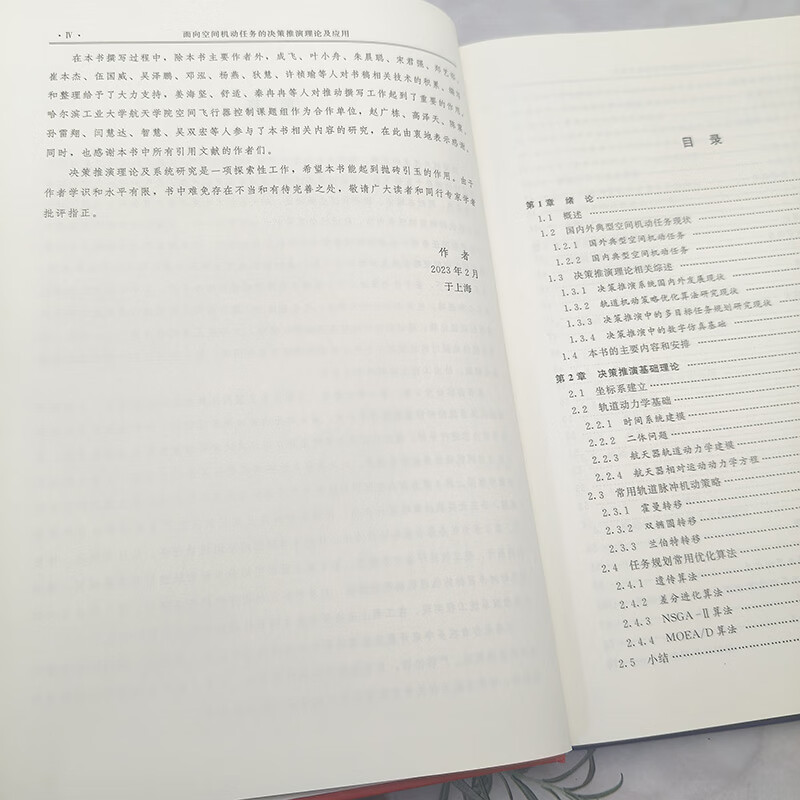 · Ⅳ ·
面向空间机动任务的决策推演理论及应用
在本书撰写过程中，除本书主要作者外，成飞、叶小舟、朱晨聪、宋君强、
崔本杰、伍国威、吴泽鹏、邓泓、杨燕、狄慧、许桢瑜等人对书稿相关技术的积累、
和整理给予了大力支持，姜海坚、舒适、秦冉冉等人对推动撰写工作起到了重要的作用，
哈尔滨工业大学航天学院空间飞行器控制课题组作为合作单位，赵广栋、高泽天、陈
孙雷翔、闫慧达、智慧、吴双宏等人参与了本书相关内容的研究，在此由衷地表示感谢。
同时，也感谢本书中所有引用文献的作者们。
决策推演理论及系统研究是一项探索性工作，希望本书能起到抛砖引玉的作用。由于
作者学识和水平有限，书中难免存在不当和有待完善之处，敬请广大读者和同行专家学者
批评指正。
作 者
2023 年 2 月
于上海
目 录
第 1 章 绪 论
1.1 概述
1.2 国内外典型空间机动任务现状
1.2.1 国外典型空间机动任务
1.2.2 国内典型空间机动任务
1.3 决策推演理论相关综述
1.3.1 决策推演系统国内外发展现状
1.3.2 轨道机动策略优化算法研究现状
1.3.3 决策推演中的多目标任务规划研究现状
1.3.4 决策推演中的数字仿真基础
1.4 本书的主要内容和安排
第 2 章 决策推演基础理论
2.1 坐标系建立
2.2 轨道动力学基础
2.2.1 时间系统建模
2.2.2 二体问题
2.2.3 航天器轨道动力学建模
2.2.4 航天器相对运动动力学方程
2.3 常用轨道脉冲机动策略
2.3.1 霍曼转移
2.3.2 双椭圆转移
2.3.3 兰伯特转移
2.4 任务规划常用优化算法
2.4.1 遗传算法
2.4.2 差分进化算法
2.4.3 NSGA-Ⅱ算法
2.4.4 MOEA/D 算法
2.5 小结